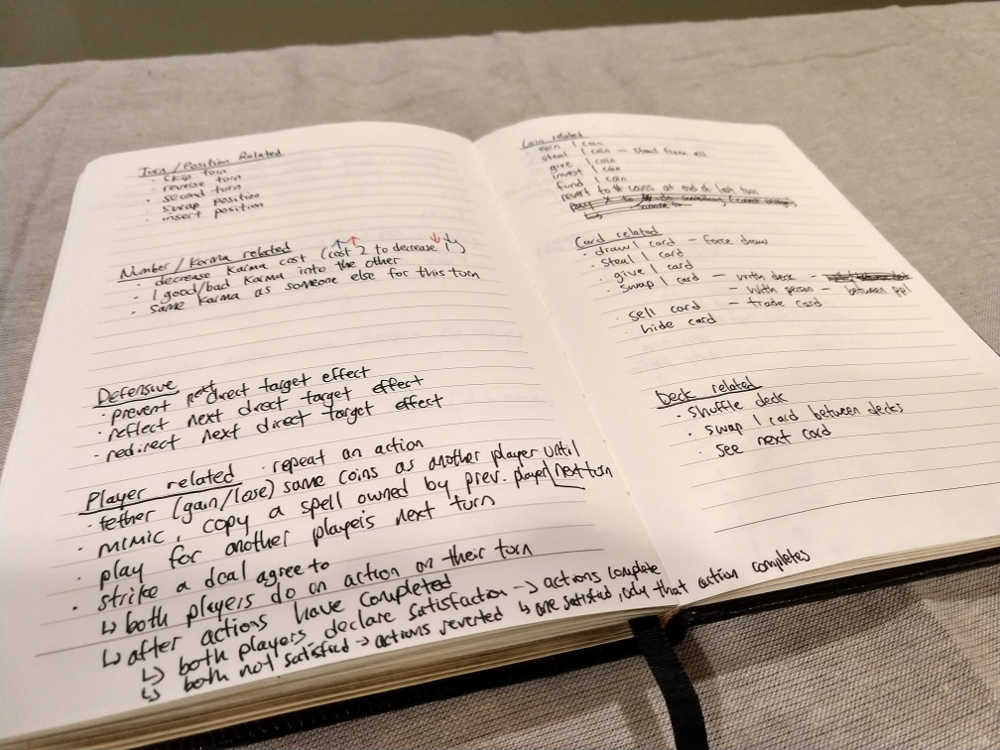 Turn / Position Related
· skip turn
· reverse turn
· second turn
· swap position
· insert position
Number / Karma related
· decrease Karma cost (cost 2 to decrease 1)
· 1 good/bad Karma into the other
· same Karma as someone else for this turn
Defensive
· prevent next direct target effect
· reflect next direct target effect
· redirect next direct target effect
Player related · repeat an action
· tether (gain/lose) same coins as another player until next turn
· mimic, copy a spell owned by prev. player
· play for another player's next turn
· strike a deal agree to
↳ both players do an action on their turn
↳ after actions have completed
↳ both players declare satisfaction → actions complete
↳ both not satisfied → actions reverted ↳ one satisfied, only that action completes
Coin related
earn 1 coin
steal 1 coin — steal from all
give 1 coin
invest 1 coin
fund 1 coin
revert to # coins at end of last turn
Card related
· draw 1 card — force draw
· steal 1 card
· give 1 card
· swap 1 card — with deck
— with person — between ppl
· sell card — trade card
· hide card
Deck related
· shuffle deck
· swap 1 card between decks
· see next card